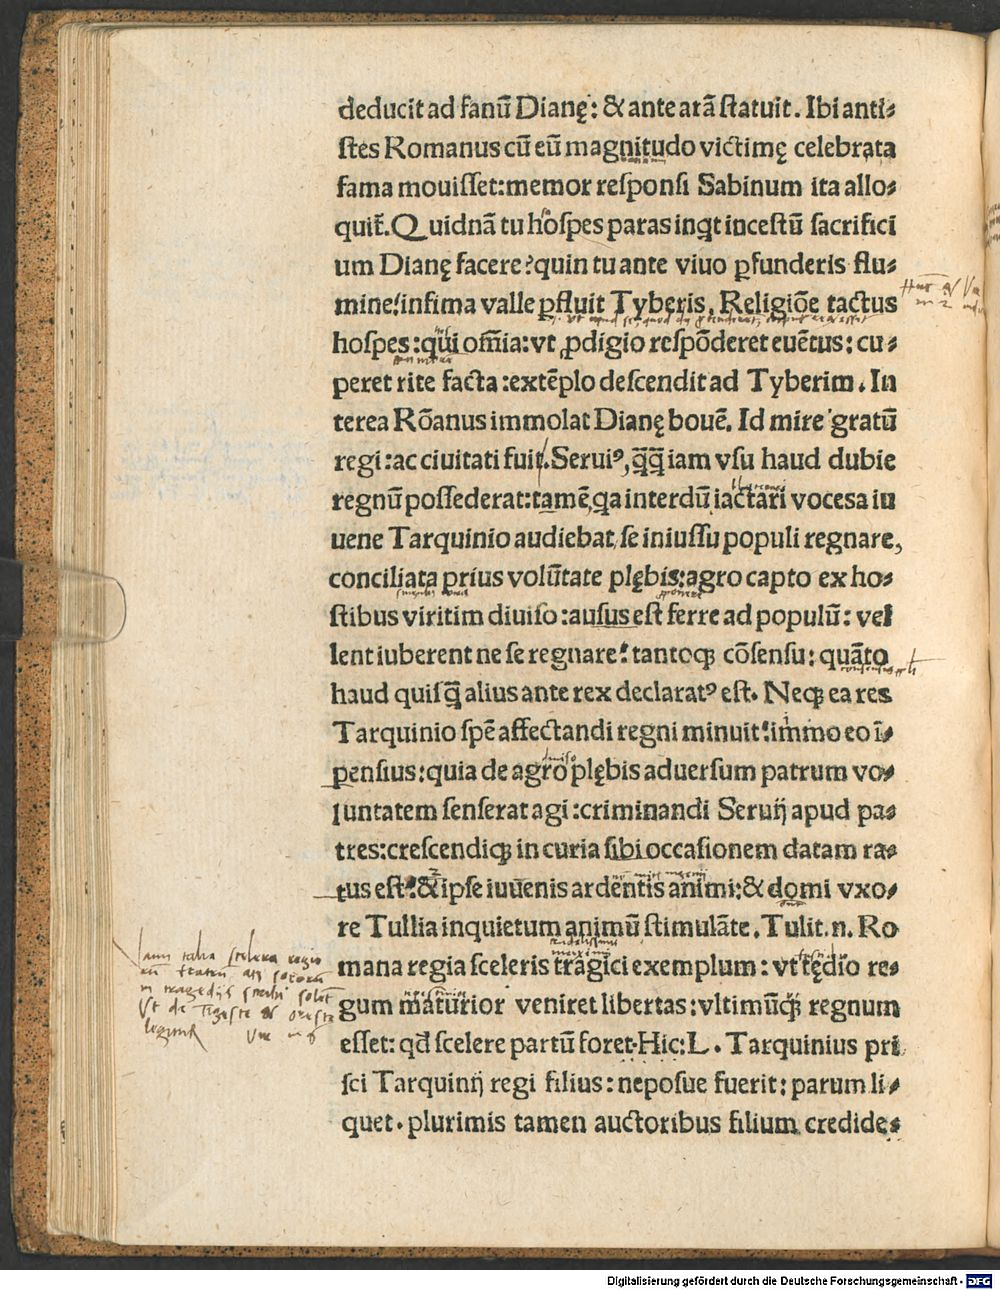 deducit ad fanũ Dianę: & ante arã ſtatuit. Ibi anti⸗
ſtes Romanus cũ eũ magnitudo victimę celebrata
fama mouiſſet: memor reſponſi Sabinum ita allo⸗
quit̃. Quidnã tu hoſpes paras inqt inceſtũ ſacrifici
um Dianę facere? quin tu ante viuo ꝑfunderis flu⸗
mine? infima valle ꝑfluit Tyberis. Religiõe tactus
hoſpes: qui om̃ia: vt ꝓdigio reſpõderet euẽtus: cu⸗
peret rite facta: extẽplo deſcendit ad Tyberim. In
terea Rõanus immolat Dianę bouẽ. Id mire gratũ
regi: ac ciuitati fuit. Seruiꝰ, q̃q̃ iam vſu haud dubie
regnũ poſſederat: tamẽ, qa interdũ iactari voces a iu
uene Tarquinio audiebat, ſe iniuſſu populi regnare,
conciliata prius volũtate plębis: agro capto ex ho⸗
ſtibus viritim diuiſo: auſus eſt ferre ad populũ: vel
lent iuberent ne ſe regnare? tantoqꝫ cõſenſu: quãto
haud quiſq̃ alius ante rex declaratꝰ eſt. Neqꝫ ea res
Tarquinio ſpẽ affectandi regni minuit: immo eo ĩ⸗
penſius: quia de agro plębis aduerſum patrum vo⸗
luntatem ſenſerat agi: criminandi Seruij apud pa⸗
tres: creſcendiqꝫ in curia ſibi occaſionem datam ra⸗
tus eſt: & ipſe iuuenis ardentis animi: & domi vxo⸗
re Tullia inquietum animũ ſtimulãte. Tulit .n. Ro
mana regia ſceleris tragici exemplum: vt tędio re⸗
gum maturior veniret libertas: vltimũqꝫ regnum
eſſet: qd̃ ſcelere partũ foret. Hic: L. Tarquinius pri
ſci Tarquinij regi filius: nepoſue fuerit: parum li⸗
quet. plurimis tamen auctoribus filium credide⸗
Digitalisierung gefördert durch die Deutsche Forschungsgemeinschaft - DFG